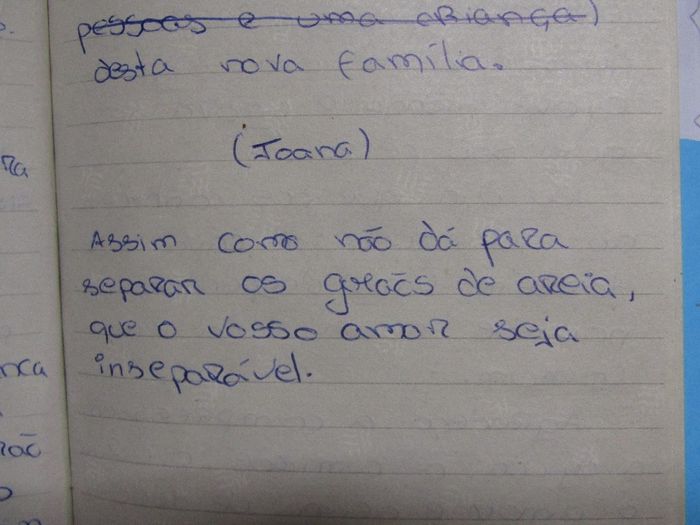 pessoas e uma criança)
desta nova família.
(Joana)
Assim como não dá para
separar os grãos de areia,
que o vosso amor seja
inseparável.